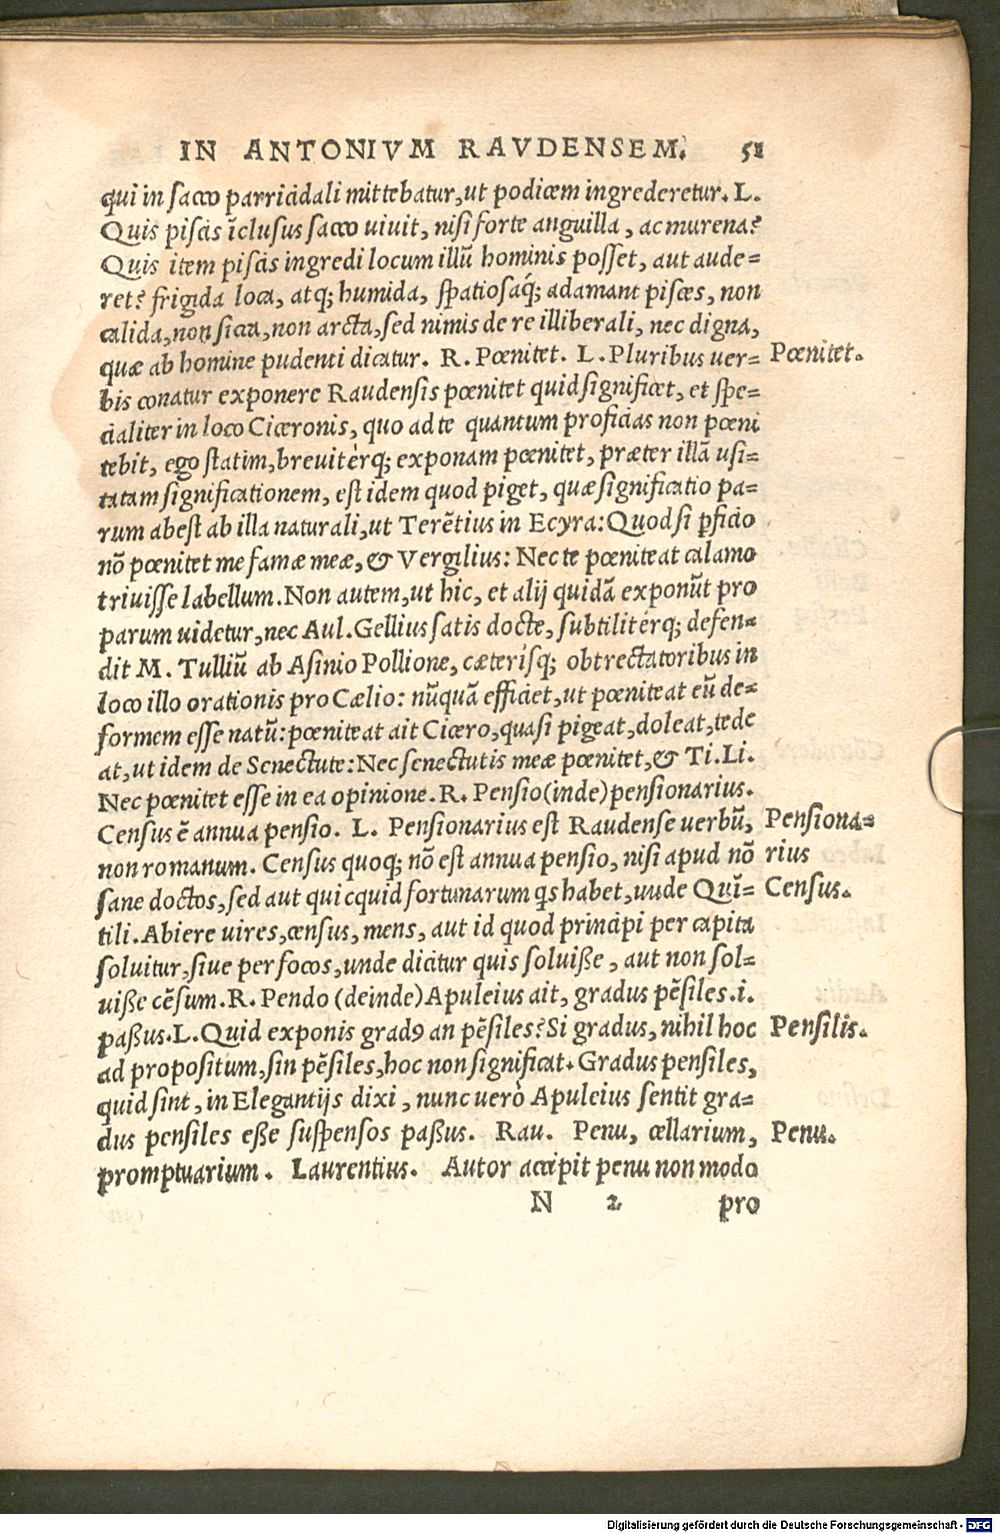 IN ANTONIVM RAVDENSEM. 51
qui in sacco parricidali mittebatur, ut podicem ingrederetur. L.
Quis piscis īclusus sacco uiuit, nisi forte anguilla, ac murena?
Quis item piscis ingredi locum illū hominis posset, aut aude=
ret? frigida loca, atq; humida, spatiosaq́; adamant pisces, non
calida, non sicca, non arcta, sed nimis de re illiberali, nec digna,
quæ ab homine pudenti dicatur. R. Pœnitet. L. Pluribus uer= Pœnitet.
bis conatur exponere Raudensis pœnitet quid significet, et spe=
cialiter in loco Ciceronis, quo ad te quantum proficias non pœni
tebit, ego statim, breuitèrq; exponam pœnitet, præter illā usi=
tatam significationem, est idem quod piget, quæ significatio pa=
rum abest ab illa naturali, ut Terētius in Ecyra: Quod si ꝓficio
nō pœnitet me famæ meæ, & Vergilius: Nec te pœniteat calamo
triuisse labellum. Non autem, ut hic, et alij quidā exponūt pro
parum uidetur, nec Aul. Gellius satis docte, subtilitérq; defen=
dit M. Tulliū ab Asinio Pollione, cæterisq́; obtrectatoribus in
loco illo orationis pro Cælio: nūquā efficiet, ut pœniteat eū de=
formem esse natū: pœniteat ait Cicero, quasi pigeat, doleat, tede
at, ut idem de Senectute: Nec senectutis meæ pœnitet, & Ti. Li.
Nec pœnitet esse in ea opinione. R. Pensio (inde) pensionarius.
Census ē annua pensio. L. Pensionarius est Raudense uerbū, Pensiona=
non romanum. Census quoq; nō est annua pensio, nisi apud nō rius
sane doctos, sed aut quicquid fortunarum qs habet, unde Quī= Census.
tili. Abiere uires, census, mens, aut id quod principi per capita
soluitur, siue per focos, unde dicitur quis soluiße, aut non sol=
uiße cēsum. R. Pendo (deinde) Apuleius ait, gradus pēsiles .i.
paßus. L. Quid exponis gradꝰ an pēsiles? Si gradus, nihil hoc Pensilis.
ad propositum, sin pēsiles, hoc non significat. Gradus pensiles,
quid sint, in Elegantijs dixi, nunc uerò Apuleius sentit gra=
dus pensiles eße suspensos paßus. Rau. Penu, cellarium, Penu.
promptuarium. Laurentius. Autor accipit penu non modo
N 2 pro
Digitalisierung gefördert durch die Deutsche Forschungsgemeinschaft - DFG